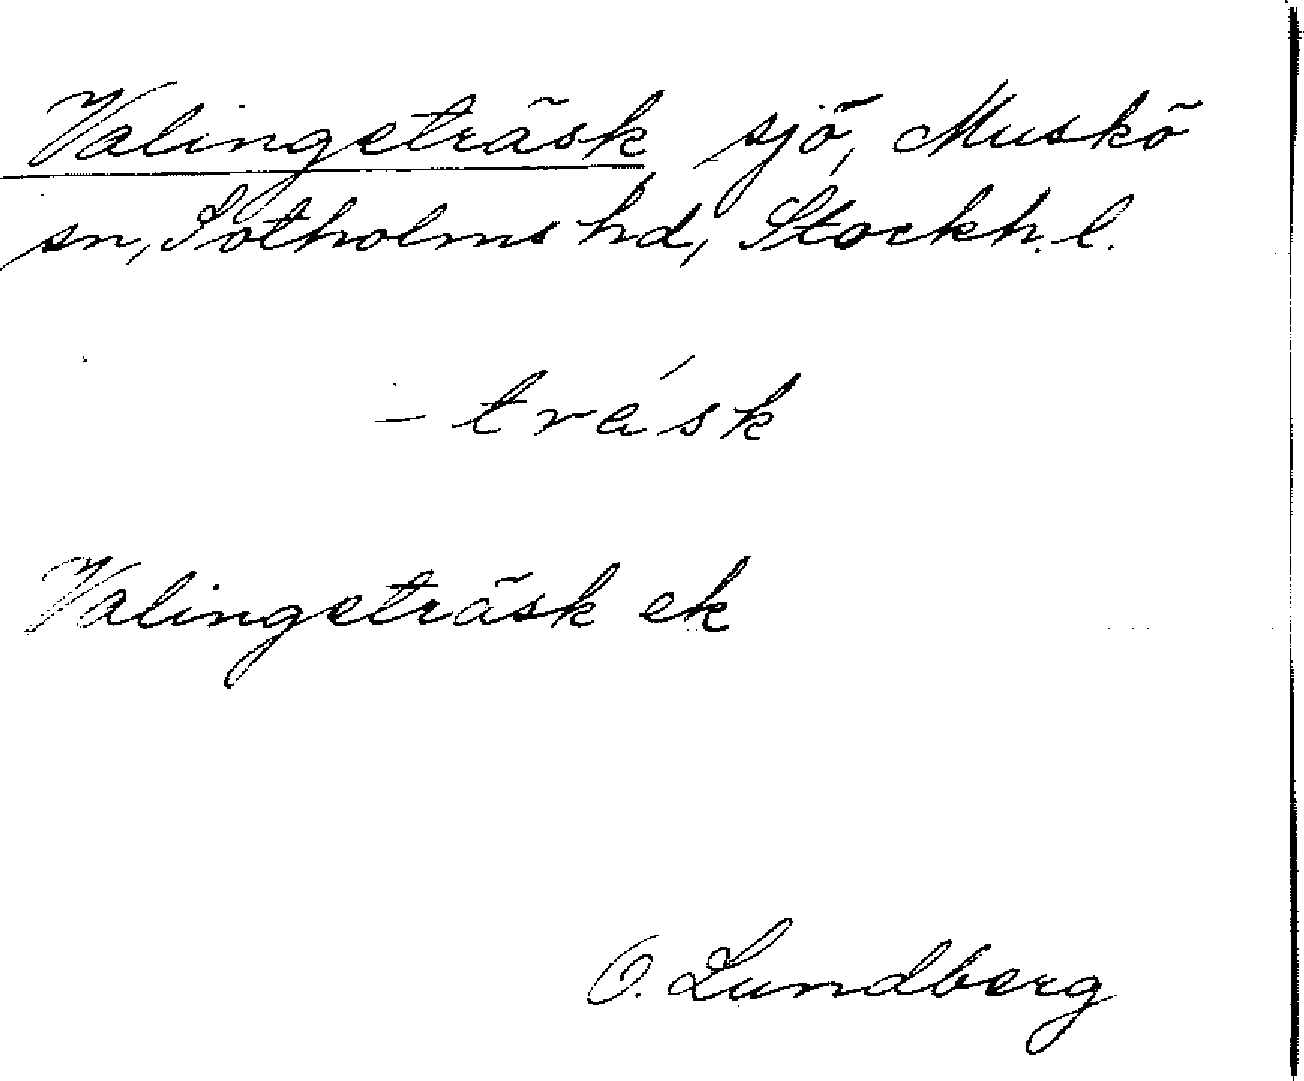 Valingeträsk sjö, Muskö
sn, Sotholms hd, Stockh. l.
- trásk
Valingeträsk ek
O. Lundberg